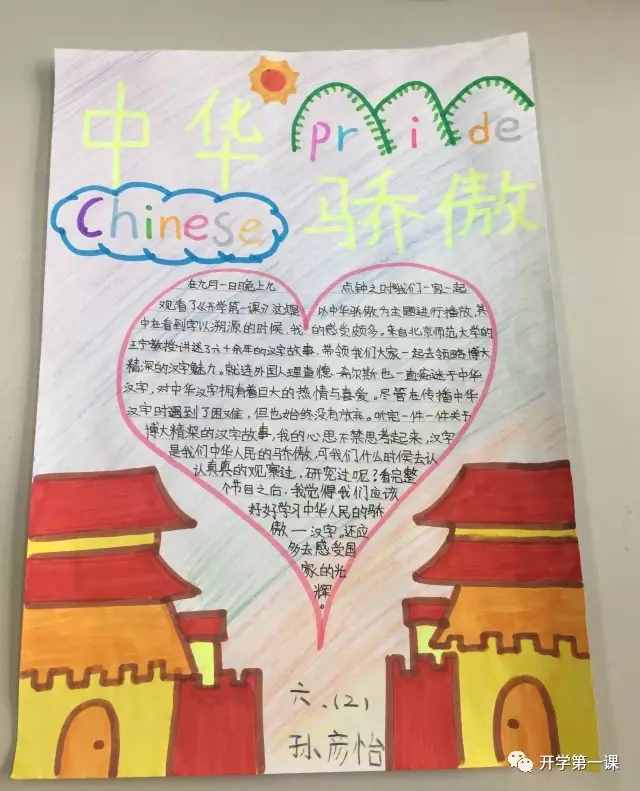 中华 pride
Chinese 骄傲
在九月一日晚上八 点钟之时我们一家一起
观看了《开学第一课》这期 以中华骄傲为主题进行播放,其
中在看到字以溯源的时候,我 的感受颇多。来自北京师范大学的
王宁教授讲述了六十余年的汉字故事,带领我们大家一起去领略博大
精深的汉字魅力。就连外国人理查德·希尔斯也一直痴迷于中华
汉字,对中华汉字拥有着巨大的热情与喜爱。尽管在传播中华
汉字时遇到了困难,但也始终没有放弃。听完一件一件关于
博大精深的汉字故事,我的心思不禁思考起来,汉字
是我们中华人民的骄傲,可我们什么时候去认
认真真的观察过,研究过呢?看完整
个节目之后,我觉得我们应该
好好学习中华人民的骄
傲——汉字。还应
多去感受国
家的光
辉。
六.(2)
孙彦怡
开学第一课